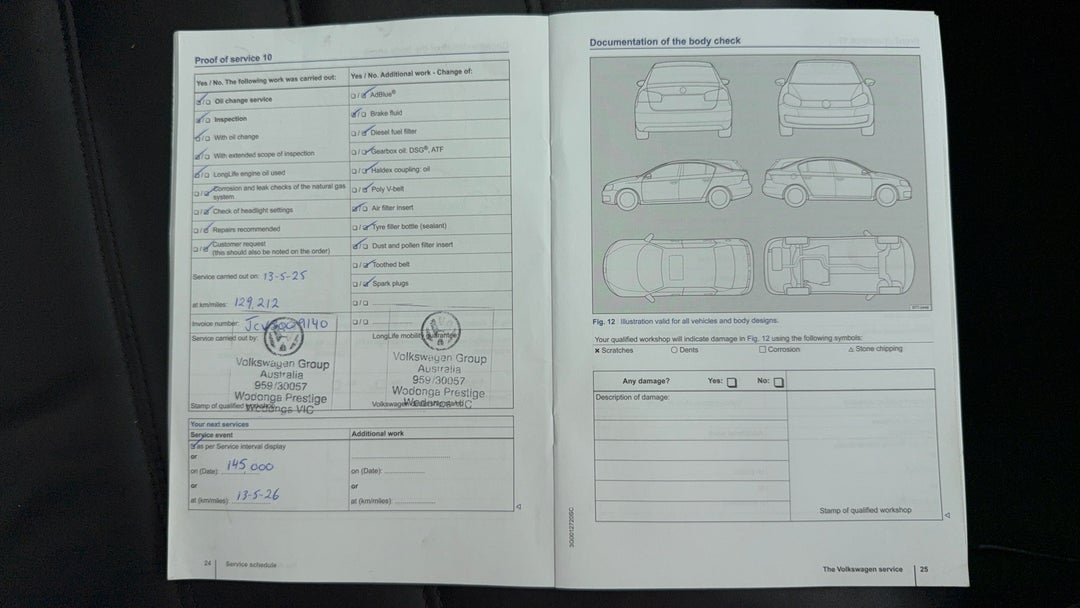 Proof of service 10
Yes / No. The following work was carried out:
Oil change service
Inspection
With oil change
With extended scope of inspection
LongLife engine oil used
Corrosion and leak checks of the natural gas
system
Check of headlight settings
Repairs recommended
Customer request
(this should also be noted on the order)
Service carried out on: 13-5-25
at km/miles: 129,212
Invoice number:
Service carried out by:
Volkswagen Group
Australia
959/30057
Wodonga Prestige
Wodonga VIC
Stamp of qualified workshop
Yes / No. Additional work - Change of:
AdBlue®
Brake fluid
Diesel fuel filter
Gearbox oil: DSG®, ATF
Haldex coupling: oil
Poly V-belt
Air filter insert
Tyre filler bottle (sealant)
Dust and pollen filter insert
Toothed belt
Spark plugs
LongLife mobility guarantee
Volkswagen Group
Australia
959/30057
Wodonga Prestige
Wodonga VIC
Your next services
Service event
as per Service interval display
or
on (Date): 145,000
or
at (km/miles): 13-5-26
Additional work
on (Date):
or
at (km/miles):
24 Service schedule
Documentation of the body check
Fig. 12 Illustration valid for all vehicles and body designs.
Your qualified workshop will indicate damage in Fig. 12 using the following symbols:
× Scratches ○ Dents □ Corrosion △ Stone chipping
Any damage? Yes: □ No: □
Description of damage:
Stamp of qualified workshop
The Volkswagen service 25